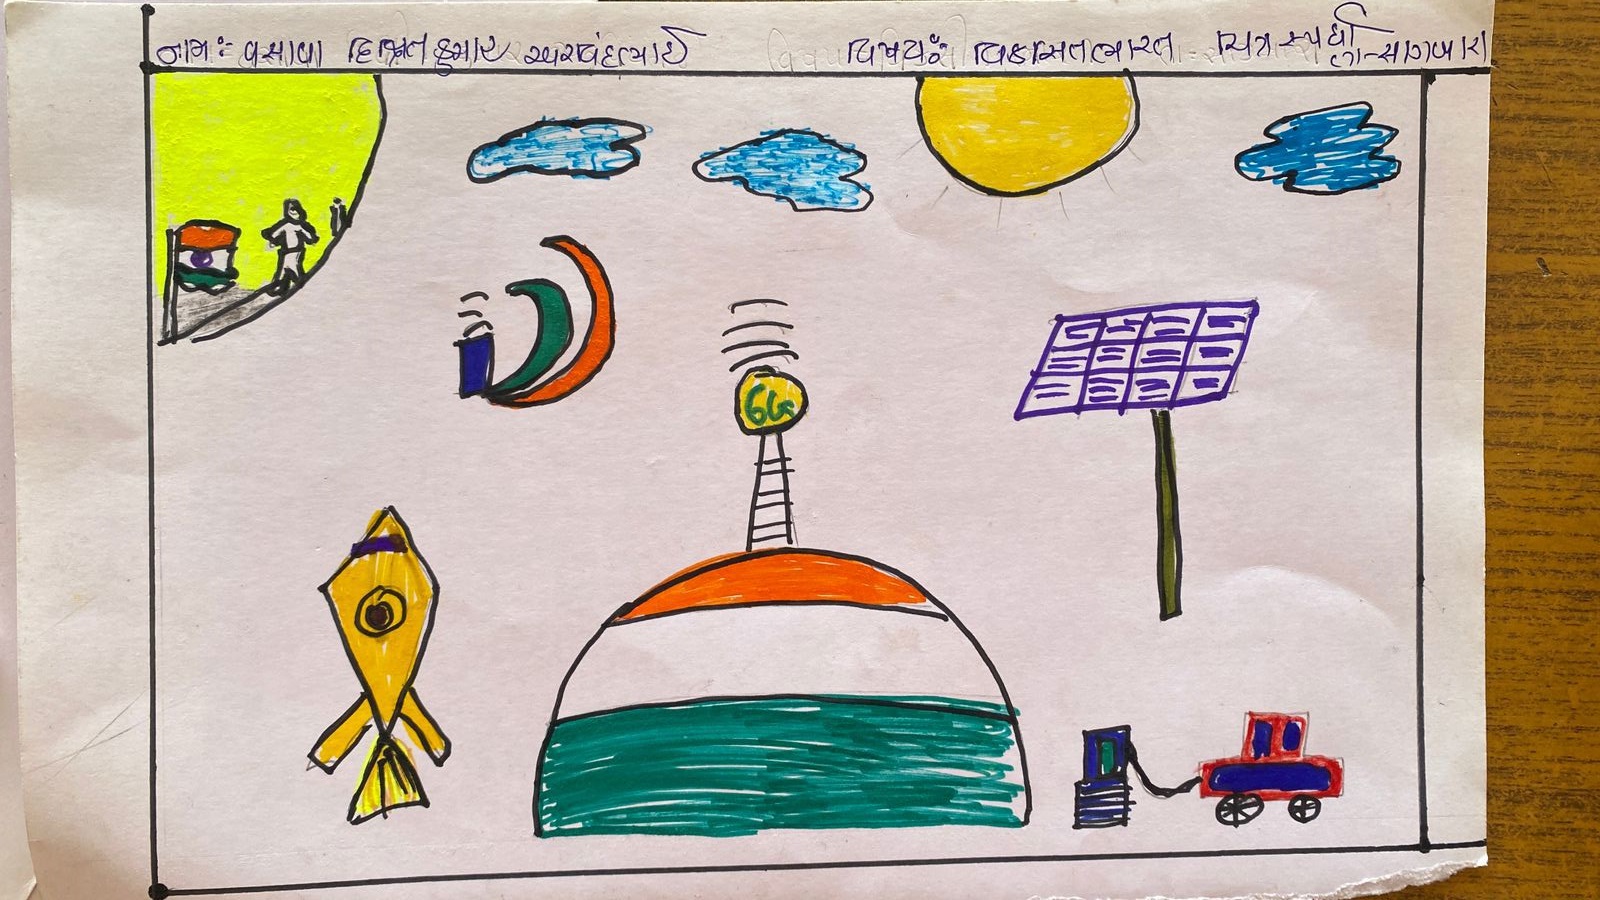 નામ:- વસાવા હિમ્મતકુમાર અરવિંદભાઈ
વિષય:- વિકસિતભારત ચિત્ર સ્પર્ધા
6G